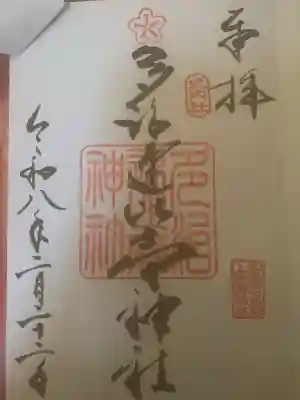 奉拝
多治速比売神社
令和八年二月二十二日